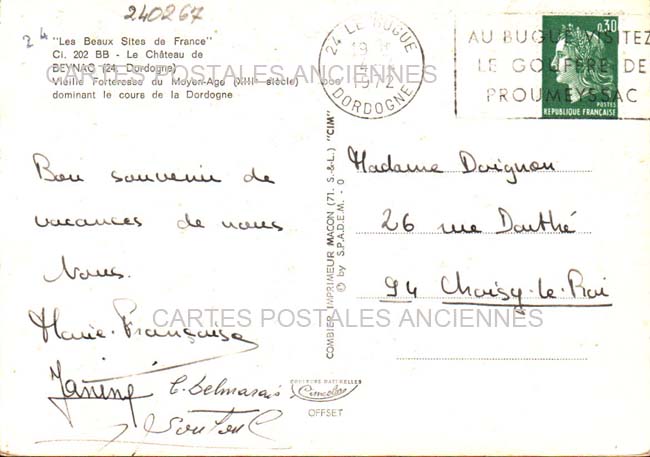 240267
24
"Les Beaux Sites de France"
CI. 202 BB - Le Château de
BEYNAC (24. Dordogne)
Vieille Forteresse du Moyen-Age (XIIIe siècle)
dominant le cours de la Dordogne
24 LE BUGUE
19 H
1972
DORDOGNE
AU BUGUE VISITEZ
LE GOUFFRE DE
PROUMEYSSAC
0,30
POSTES
REPUBLIQUE FRANÇAISE
CARTES POSTALES ANCIENNES
Bon souvenir de
vacances de nous
Nous.
Marie-Françoise
Janine
COMBIER IMPRIMEUR MACON (71. S.-&-L.) "CIM"
© by S.P.A.D.E.M. - 0
Madame Dorignon
26 rue Darthé
94 Choisy-le-Roi
CARTES POSTALES ANCIENNES
COULEURS NATURELLES
OFFSET